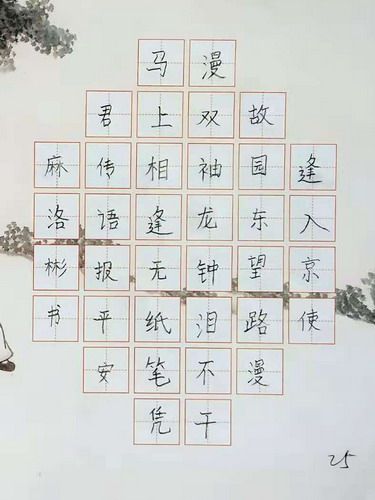 逢入京使
故园东望路漫
漫双袖龙钟泪不干
马上相逢无纸笔凭
君传语报平安
麻洛彬书
25